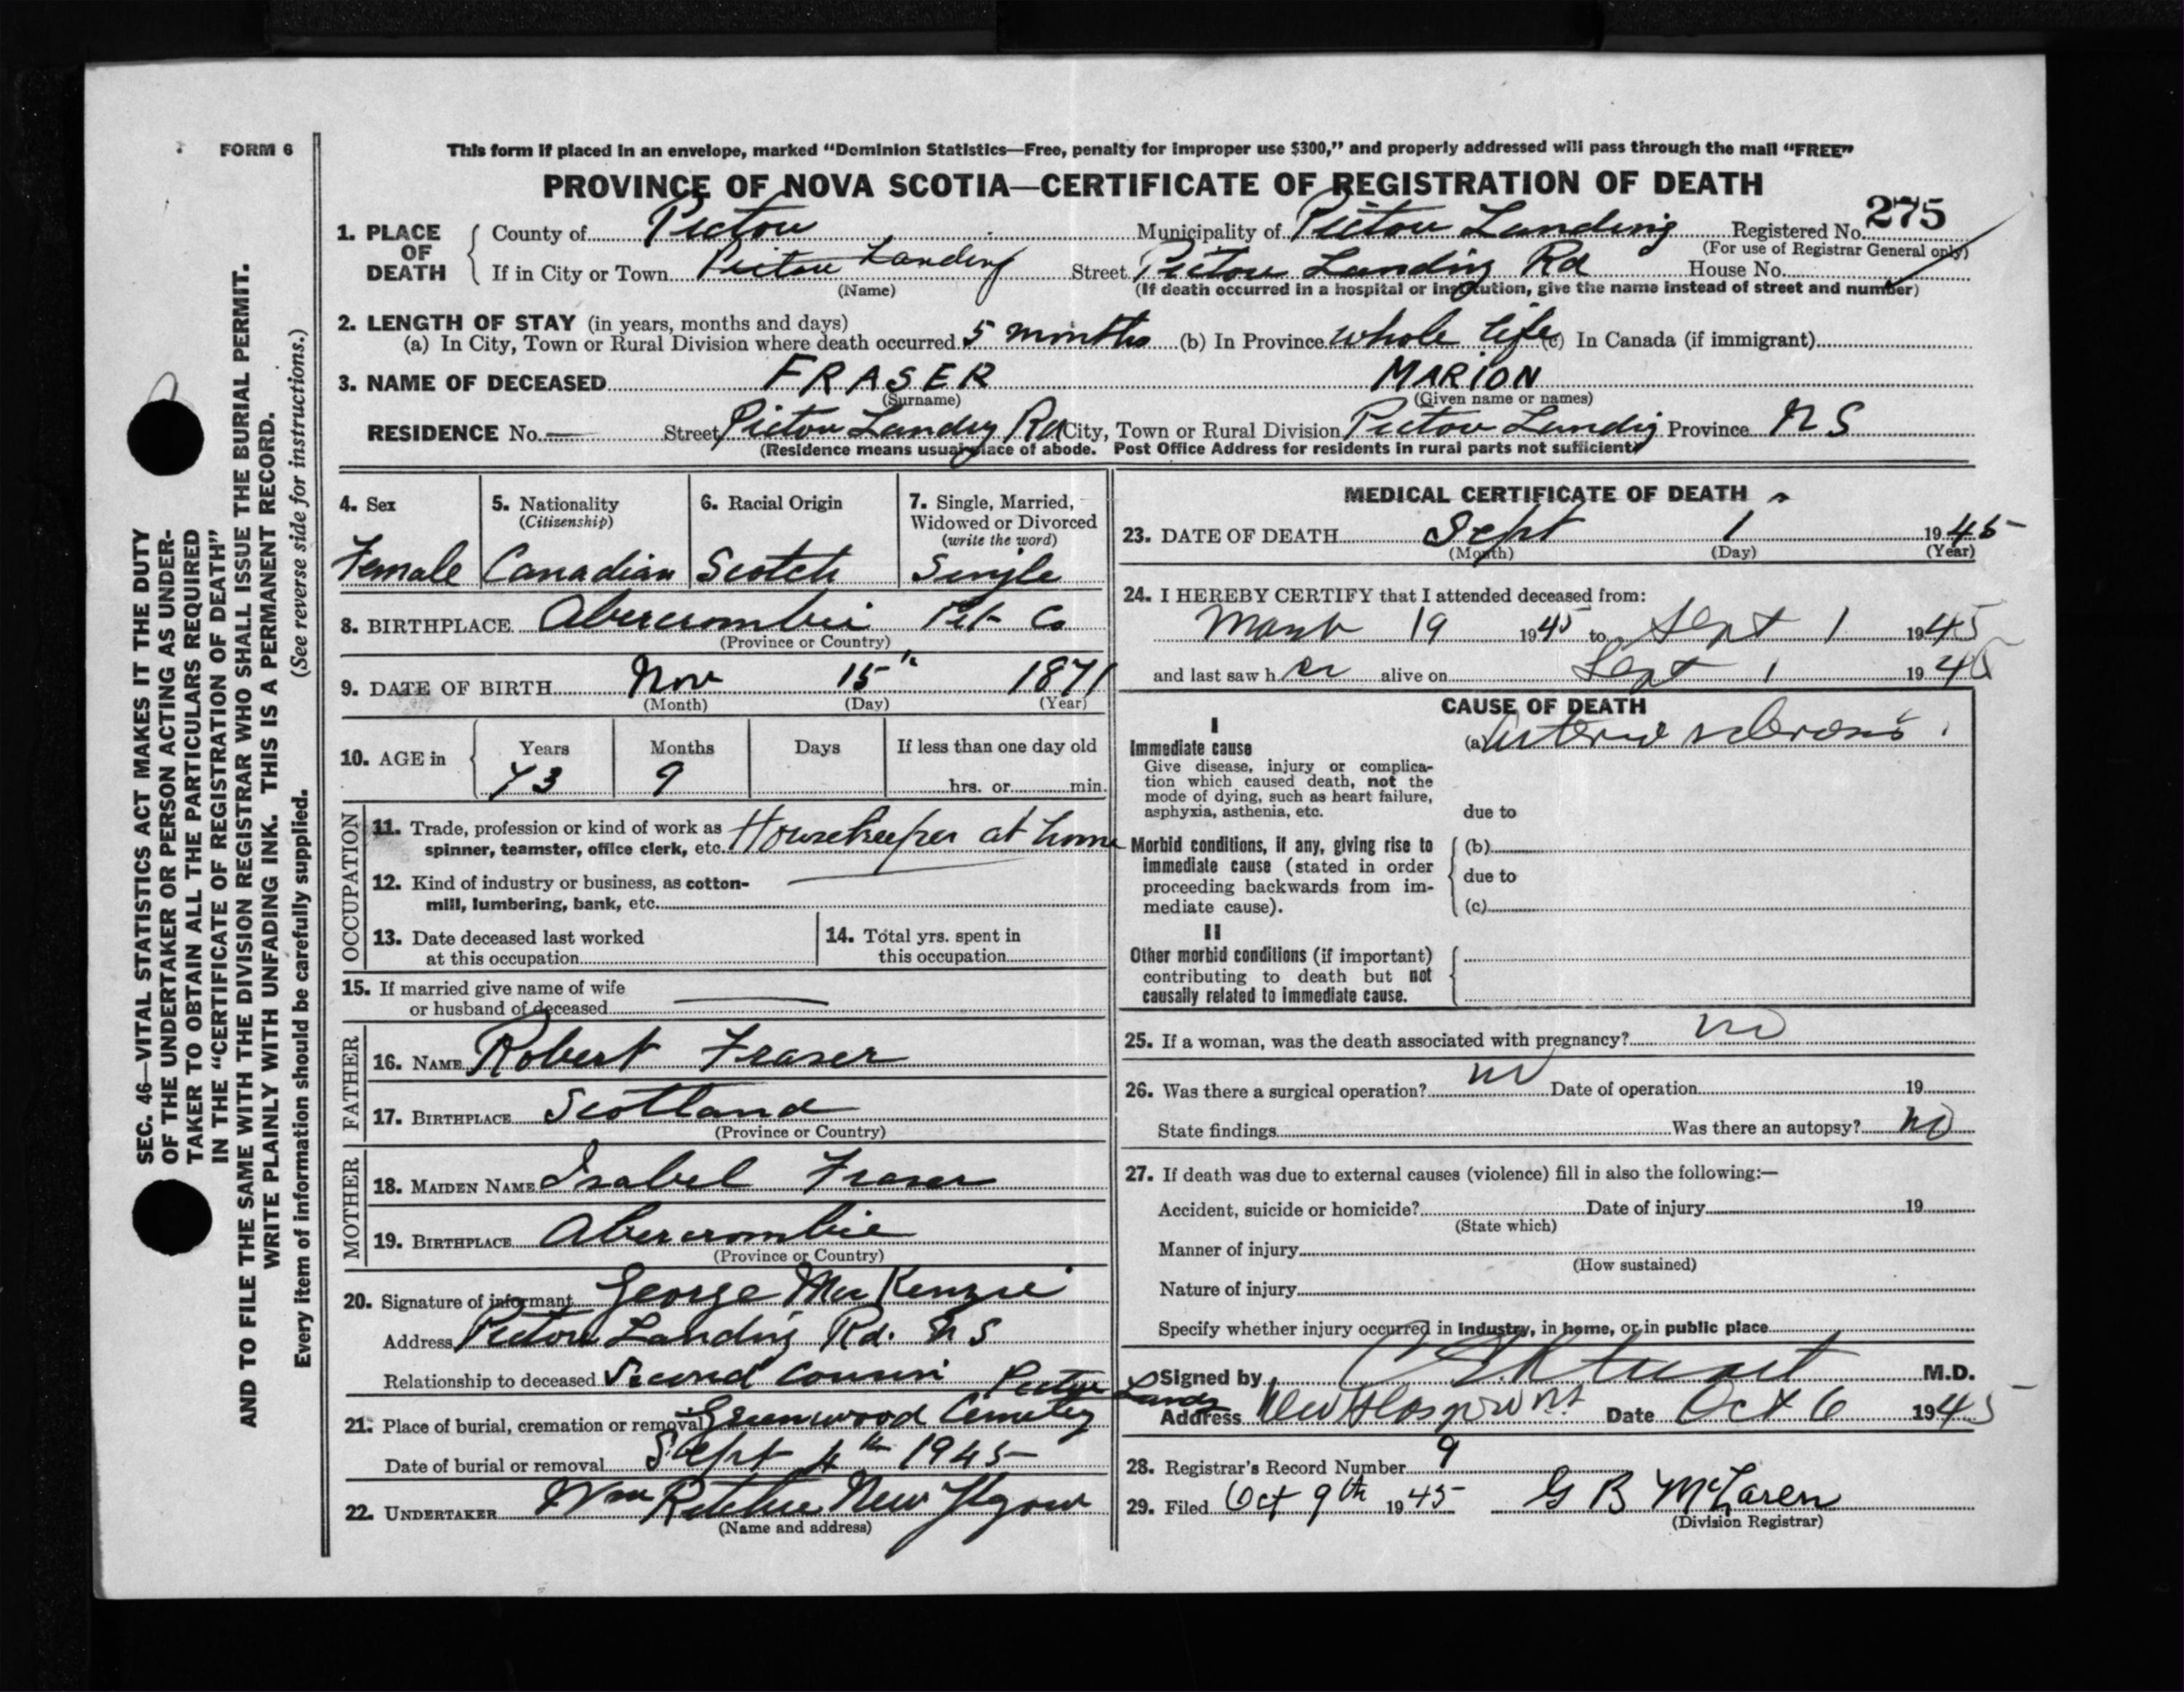 FORM 6
This form if placed in an envelope, marked “Dominion Statistics—Free, penalty for improper use $300,” and properly addressed will pass through the mail “FREE”
PROVINCE OF NOVA SCOTIA—CERTIFICATE OF REGISTRATION OF DEATH
275
1. PLACE OF DEATH County of Pictou Municipality of Pictou Landing Registered No.
(For use of Registrar General only)
If in City or Town Pictou Landing Street Pictou Landing Rd House No.
(Name) (If death occurred in a hospital or institution, give the name instead of street and number)
2. LENGTH OF STAY (in years, months and days)
(a) In City, Town or Rural Division where death occurred 5 months (b) In Province whole life (c) In Canada (if immigrant)
3. NAME OF DECEASED FRASER MARION
(Surname) (Given name or names)
RESIDENCE No. — Street Pictou Landing Rd City, Town or Rural Division Pictou Landing Province N S
(Residence means usual place of abode. Post Office Address for residents in rural parts not sufficient)
4. Sex
Female
5. Nationality
(Citizenship)
Canadian
6. Racial Origin
Scotch
7. Single, Married,
Widowed or Divorced
(write the word)
Single
8. BIRTHPLACE Abercrombie Pict Co
(Province or Country)
9. DATE OF BIRTH Nov 15th 1871
(Month) (Day) (Year)
10. AGE in Years Months Days If less than one day old
73 9 hrs. or min.
OCCUPATION
11. Trade, profession or kind of work as
spinner, teamster, office clerk, etc. Housekeeper at home
12. Kind of industry or business, as cotton-
mill, lumbering, bank, etc. —
13. Date deceased last worked
at this occupation
14. Total yrs. spent in
this occupation
15. If married give name of wife
or husband of deceased —
FATHER
16. NAME Robert Fraser
17. BIRTHPLACE Scotland
(Province or Country)
MOTHER
18. MAIDEN NAME Isabel Fraser
19. BIRTHPLACE Abercrombie
(Province or Country)
20. Signature of informant George MacKenzie
Address Pictou Landing Rd. N S
Relationship to deceased Second Cousin
Pictou Landg
21. Place of burial, cremation or removal Greenwood Cemetery
Date of burial or removal Sept 4th 1945
22. UNDERTAKER Wm Ritchie New Glgow
(Name and address)
MEDICAL CERTIFICATE OF DEATH
23. DATE OF DEATH Sept 1 1945
(Month) (Day) (Year)
24. I HEREBY CERTIFY that I attended deceased from:
March 19 1945 to Sept 1 1945
and last saw h er alive on Sept 1 1945
CAUSE OF DEATH
I
Immediate cause
Give disease, injury or complica-
tion which caused death, not the
mode of dying, such as heart failure,
asphyxia, asthenia, etc.
(a) Arterio sclerosis.
due to
Morbid conditions, if any, giving rise to
immediate cause (stated in order
proceeding backwards from im-
mediate cause).
(b)
due to
(c)
II
Other morbid conditions (if important)
contributing to death but not
causally related to immediate cause.
25. If a woman, was the death associated with pregnancy? no
26. Was there a surgical operation? no Date of operation 19
State findings Was there an autopsy? no
27. If death was due to external causes (violence) fill in also the following:—
Accident, suicide or homicide? Date of injury 19
(State which)
Manner of injury
(How sustained)
Nature of injury
Specify whether injury occurred in industry, in home, or in public place
Signed by M.D.
Address New Glasgow NS Date Oct 6 1945
28. Registrar's Record Number 9
29. Filed Oct 9th 1945 G B McLaren
(Division Registrar)
SEC. 46—VITAL STATISTICS ACT MAKES IT THE DUTY
OF THE UNDERTAKER OR PERSON ACTING AS UNDER-
TAKER TO OBTAIN ALL THE PARTICULARS REQUIRED
IN THE “CERTIFICATE OF REGISTRATION OF DEATH”
AND TO FILE THE SAME WITH THE DIVISION REGISTRAR WHO SHALL ISSUE THE BURIAL PERMIT.
WRITE PLAINLY WITH UNFADING INK. THIS IS A PERMANENT RECORD.
Every item of information should be carefully supplied. (See reverse side for instructions.)